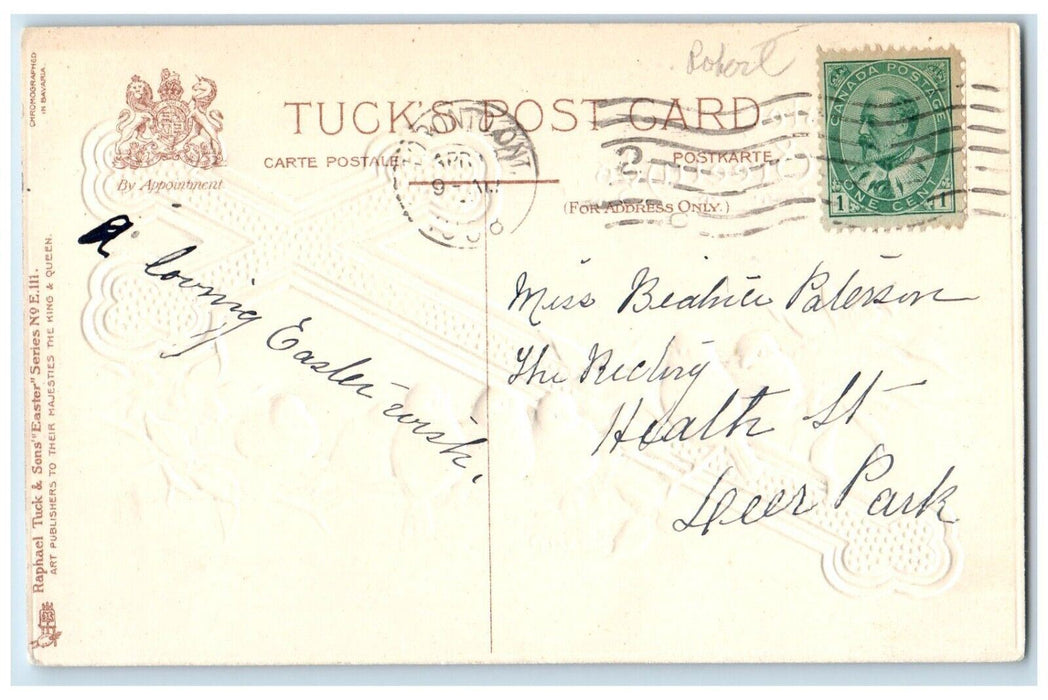 CHROMOGRAPHED
IN BAVARIA.
Robert
TUCK'S POST CARD
CARTE POSTALE
POSTKARTE.
(FOR ADDRESS ONLY.)
By Appointment.
TORONTO, ONT.
APR
9-AM
1908
CANADA POSTAGE
1 ONE CENT 1
A loving Easter wish.
Miss Beatrice Paterson
The
Heath St
Deer Park
Raphael Tuck & Sons' "Easter" Series Nº E.111.
ART PUBLISHERS TO THEIR MAJESTIES THE KING & QUEEN.